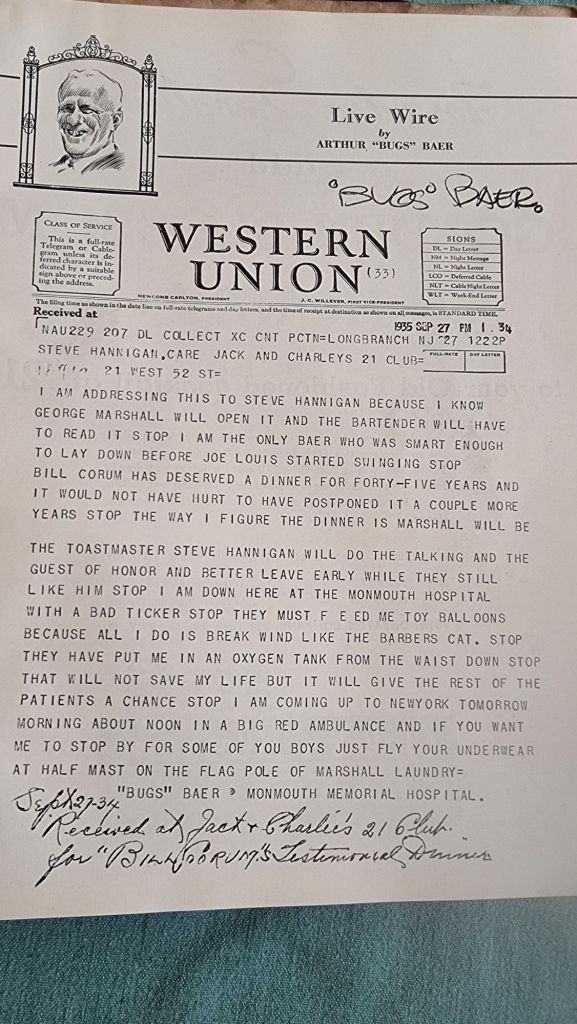 Live Wire
by
ARTHUR "BUGS" BAER
"BUGS" BAER.
CLASS OF SERVICE
This is a full-rate
Telegram or Cable-
gram unless its de-
ferred character is in-
dicated by a suitable
sign above or preced-
ing the address.
WESTERN
UNION
(33)
SIGNS
DL = Day Letter
NM = Night Message
NL = Night Letter
LCO = Deferred Cable
NLT = Cable Night Letter
WLT = Week-End Letter
NEWCOMB CARLTON, PRESIDENT
J. C. WILLEVER, FIRST VICE-PRESIDENT
The filing time as shown in the date line on full-rate telegrams and day letters, and the time of receipt at destination as shown on all messages, is STANDARD TIME.
Received at
1935 SEP 27 PM 1 34
NAU229 207 DL COLLECT XC CNT PCTN=LONGBRANCH NJ 27 1222P
STEVE HANNIGAN,CARE JACK AND CHARLEYS 21 CLUB=
FULL-RATE
DAY LETTER
21 WEST 52 ST=
I AM ADDRESSING THIS TO STEVE HANNIGAN BECAUSE I KNOW
GEORGE MARSHALL WILL OPEN IT AND THE BARTENDER WILL HAVE
TO READ IT STOP I AM THE ONLY BAER WHO WAS SMART ENOUGH
TO LAY DOWN BEFORE JOE LOUIS STARTED SWINGING STOP
BILL CORUM HAS DESERVED A DINNER FOR FORTY-FIVE YEARS AND
IT WOULD NOT HAVE HURT TO HAVE POSTPONED IT A COUPLE MORE
YEARS STOP THE WAY I FIGURE THE DINNER IS MARSHALL WILL BE
THE TOASTMASTER STEVE HANNIGAN WILL DO THE TALKING AND THE
GUEST OF HONOR AND BETTER LEAVE EARLY WHILE THEY STILL
LIKE HIM STOP I AM DOWN HERE AT THE MONMOUTH HOSPITAL
WITH A BAD TICKER STOP THEY MUST F E ED ME TOY BALLOONS
BECAUSE ALL I DO IS BREAK WIND LIKE THE BARBERS CAT. STOP
THEY HAVE PUT ME IN AN OXYGEN TANK FROM THE WAIST DOWN STOP
THAT WILL NOT SAVE MY LIFE BUT IT WILL GIVE THE REST OF THE
PATIENTS A CHANCE STOP I AM COMING UP TO NEWYORK TOMORROW
MORNING ABOUT NOON IN A BIG RED AMBULANCE AND IF YOU WANT
ME TO STOP BY FOR SOME OF YOU BOYS JUST FLY YOUR UNDERWEAR
AT HALF MAST ON THE FLAG POLE OF MARSHALL LAUNDRY=
"BUGS" BAER MONMOUTH MEMORIAL HOSPITAL.
Sept 27-34
Received at Jack & Charlie's 21 Club.
for "BILL CORUM'S Testimonial Dinner